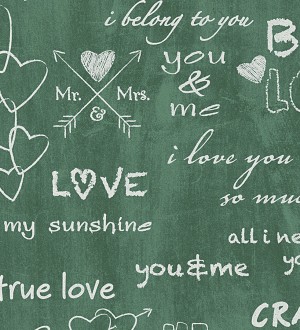 i belong to you
you
&
me
Mr.
Mrs.
&
i love you
so mu
LOVE
my sunshine
all i ne
yo
you & me
true love
CRA